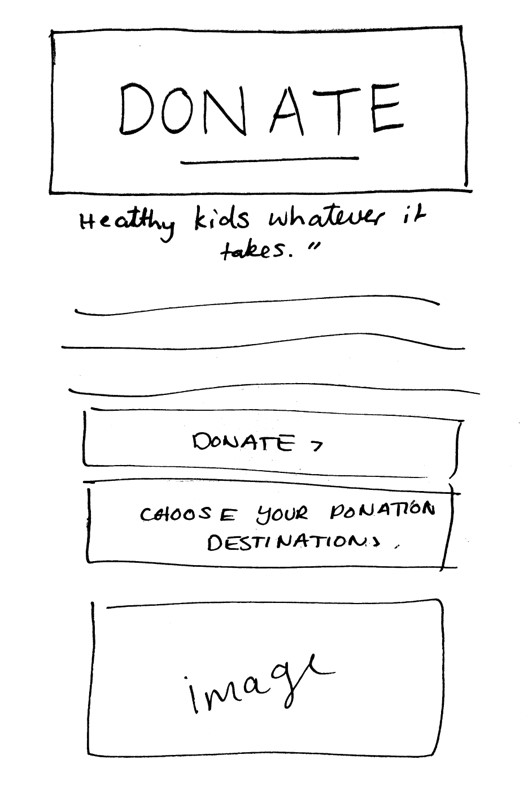 DONATE
Healthy kids whatever it
takes."
DONATE >
CHOOSE YOUR DONATION
DESTINATION>.
image